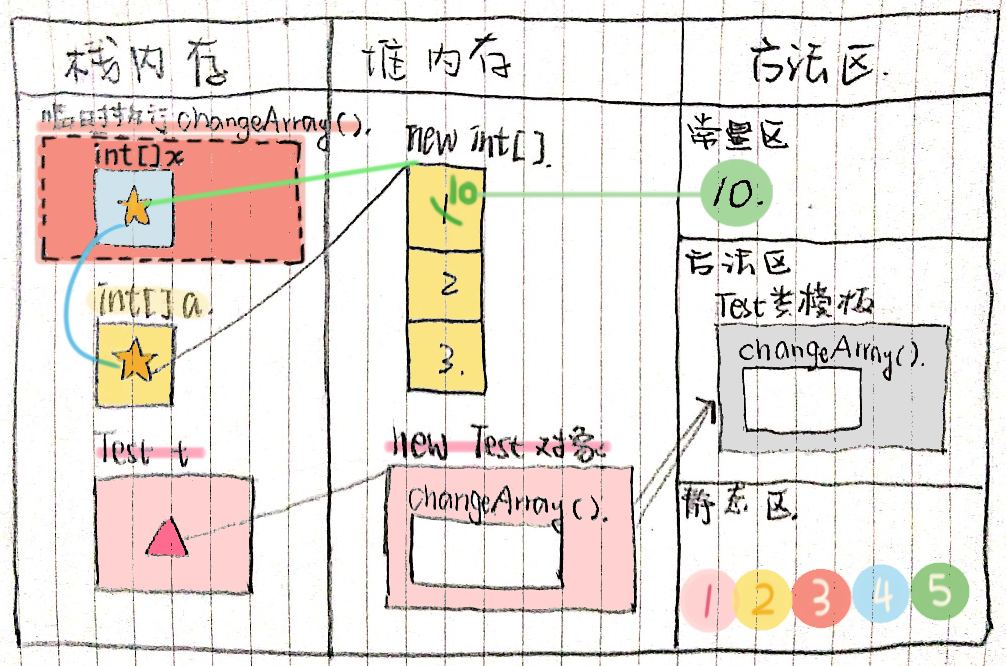 栈内存
堆内存
方法区.
临时执行changeArray().
int[]x
int[]a.
Test t
new int[].
1 10
2
3.
new Test对象.
changeArray().
常量区
10.
方法区
Test类模板
changeArray().
静态区.
1 2 3 4 5